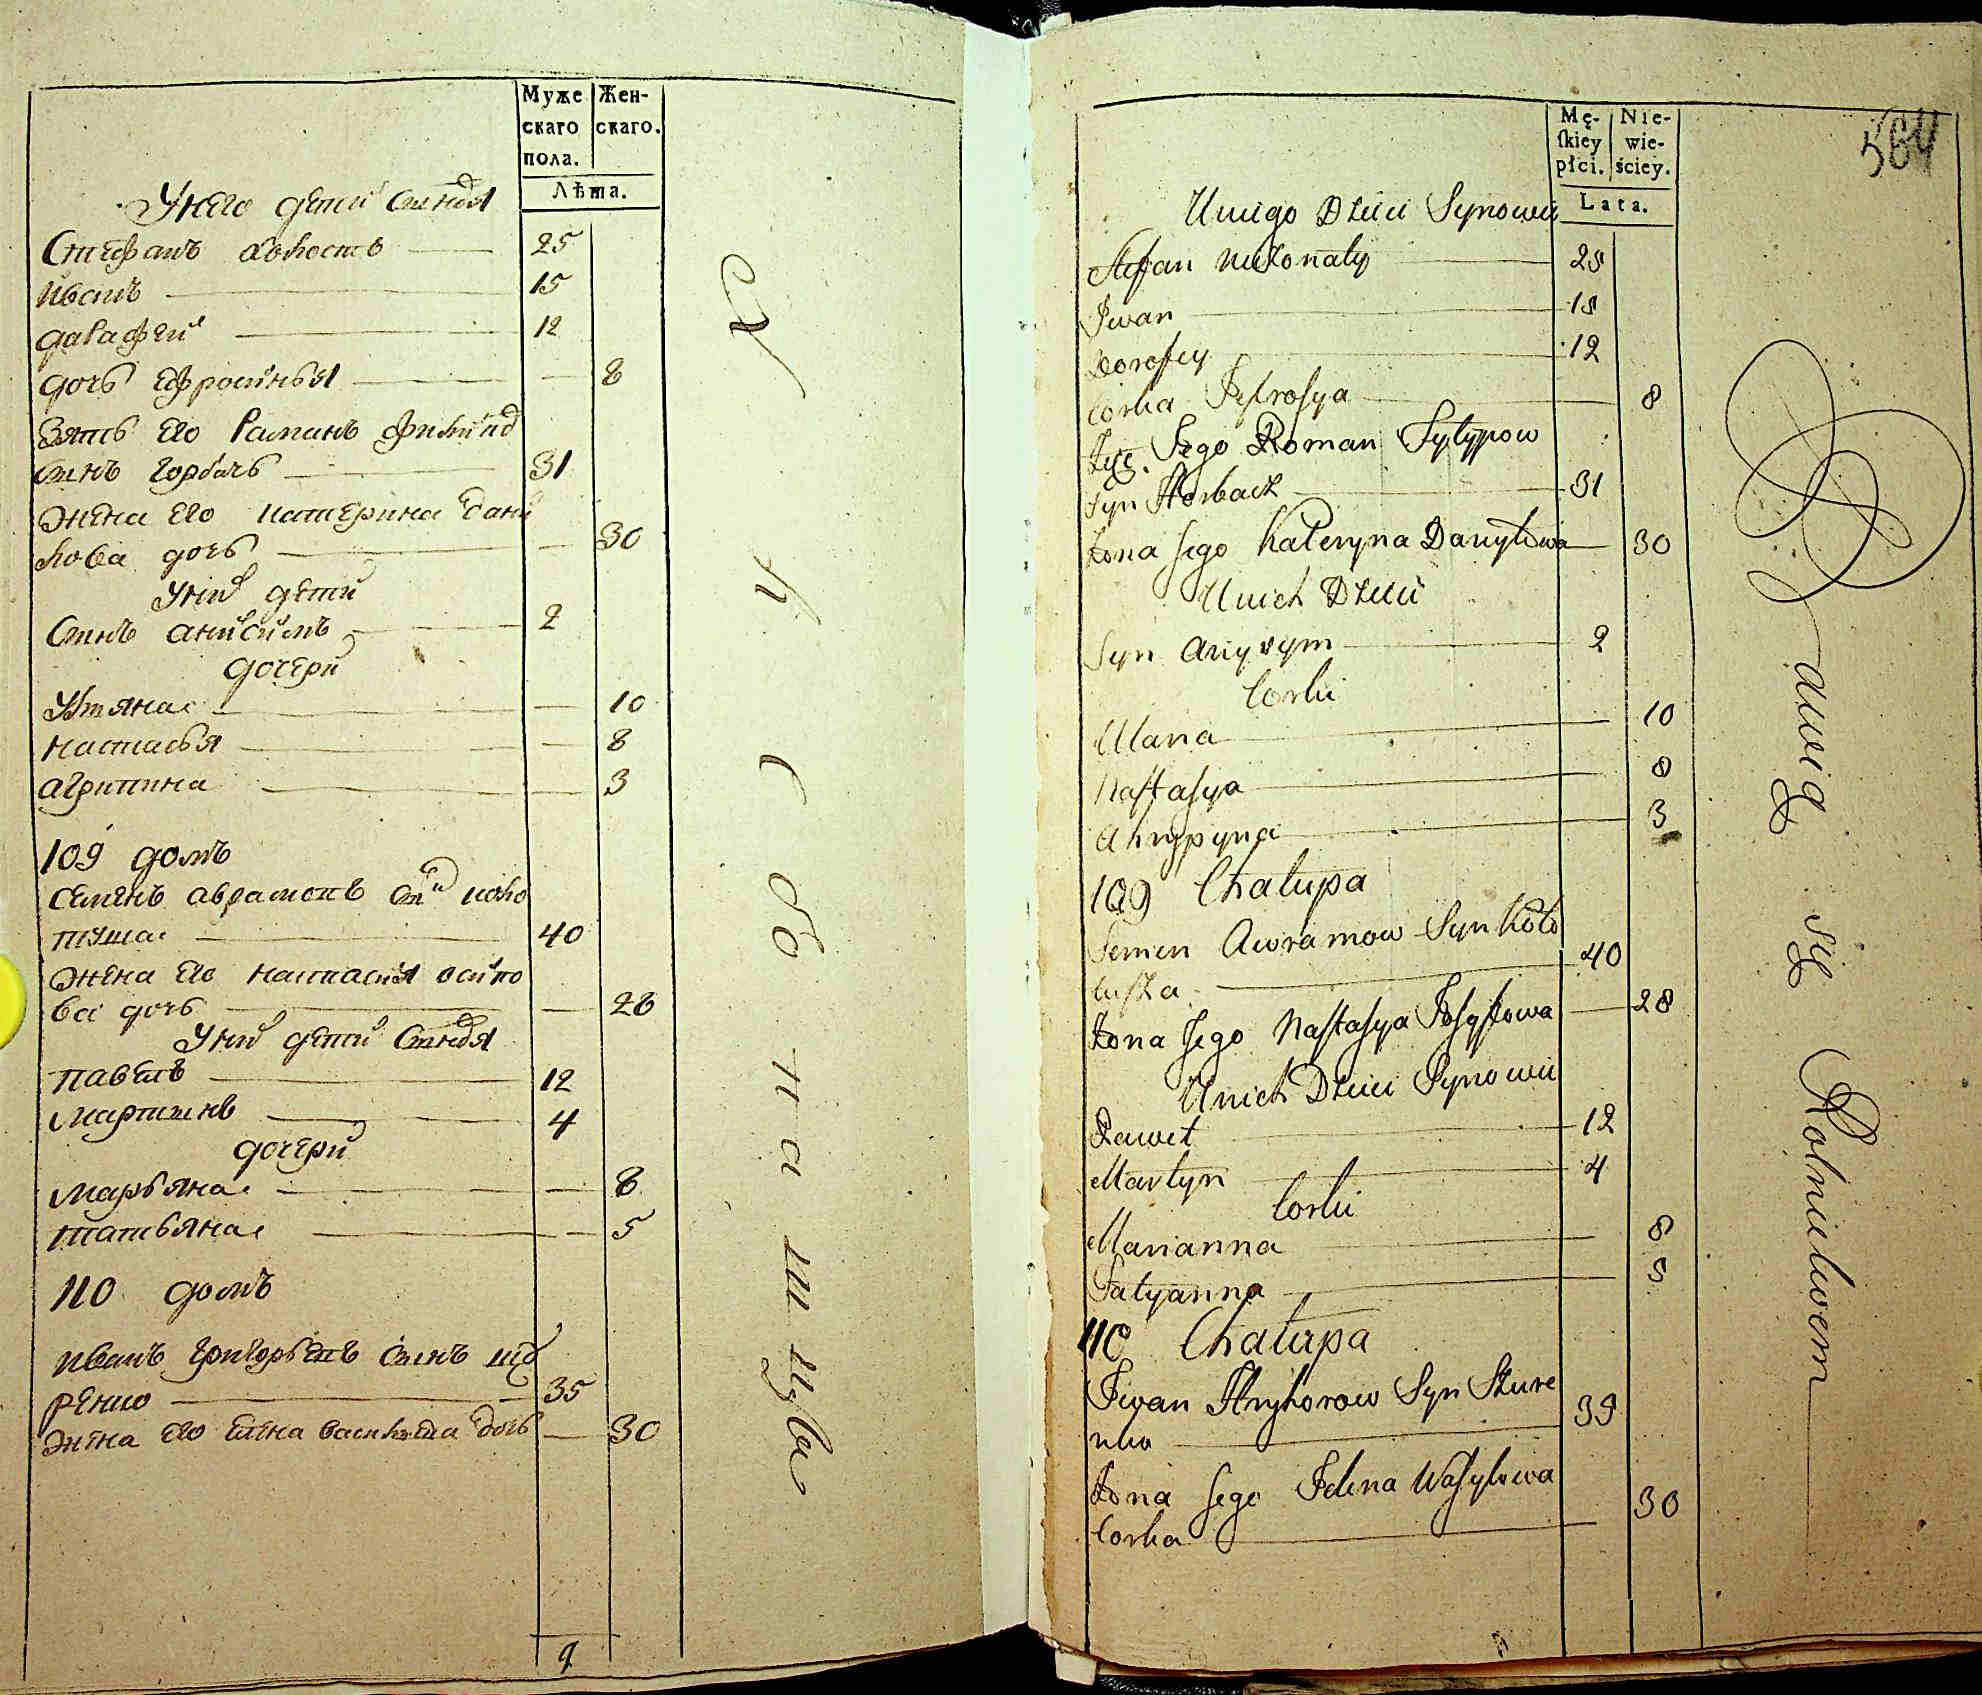 Муже
скаго
пола.
Жен-
скаго.
Лѣта.
Унего дети Синовя
Стефанъ холостъ 25
Иванъ 15
дарафей 12
дочь Ефросинья 8
Зять его Раманъ Филипов
синъ Горбачь 31
Жена его Катерина Дани
лова дочь 30
Уних дети
Синъ анисимъ 2
дочери
Улияна 10
Настасья 8
агрипина 3
109 домъ
Семенъ аврамовъ коло
туша 40
Жена его настасия осипо
ва дочь 28
Уних дети Синовя
павелъ 12
мартинъ 4
дочери
марьяна 8
татьяна 5
110 домъ
Иванъ Григорьевъ синъ
ренко 35
Жена его елена васильева дочь 30
9
Mę-
skiey
płci.
Nie-
wie-
ściey.
Lata.
564
Uniego Dzieci Synowie
Stefan nieżonaty 25
Jwan 15
Dorofey 12
Corka Jefrosya 8
Jego Roman Fylypow
Syn Horbacz 31
Żona Jego Kateryna Danyłowa 30
Unich Dzieci
Syn Anysym 2
Corki
Ulana 10
Nastasya 8
Ahrypyna 3
109 Chałupa
Semen Awramow Syn Koło
tusza 40
Żona Jego Nastasya Josypowa 28
Unich Dzieci Synowie
Paweł 12
Martyn 4
Corki
Marianna 8
Tatyanna 5
110 Chałupa
Jwan Hryhorow Syn Szure
nko 35
Żona Jego Jelena Wasylowa
Corka 30
Bawią się Rolnictwem